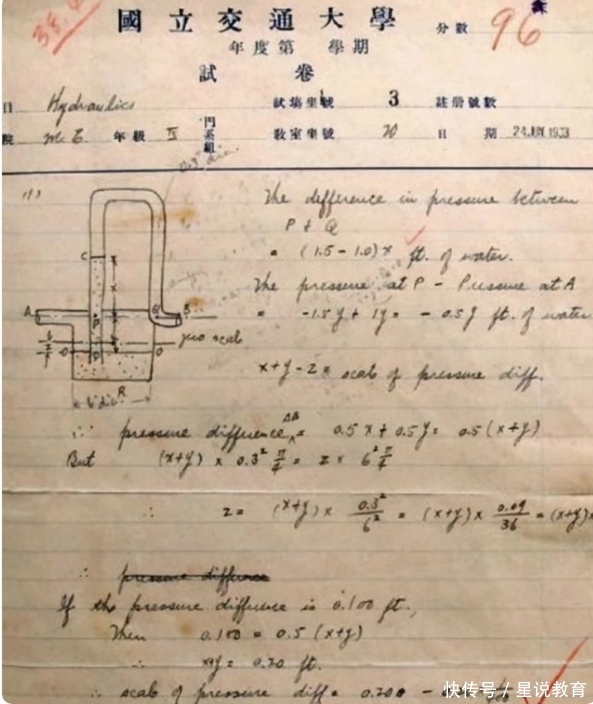 國立交通大學
年度第 學期
試 卷
分數 96
日 Hydraulics 試場坐號 3 註册號數
院 M. E. 年級 IV 門系組 教室坐號 20 日 期 24 JUN 1933
(1)
The defference in pressure between
P & Q
= (1.5 - 1.0) x ft. of water.
The pressure at P - Pressure at A
= -1.5y + 1y = - 0.5y ft. of water
C
A
P
Q
B
zero scale
O
O
R
6" dia.
x+y-z = scale of pressure diff.
∴ pressure difference AB = 0.5x + 0.5y = 0.5(x+y)
But (x+y) x 0.3² π/4 = z x 6² π/4
∴ z = (x+y) x 0.3²/6² = (x+y) x 0.09/36 = (x+y)
∴ pressure difference
If the pressure difference is 0.100 ft.,
Then 0.100 = 0.5 (x+y)
∴ x+y = 0.20 ft.
∴ scale of pressure diff = 0.200 -
快传号/星说教育